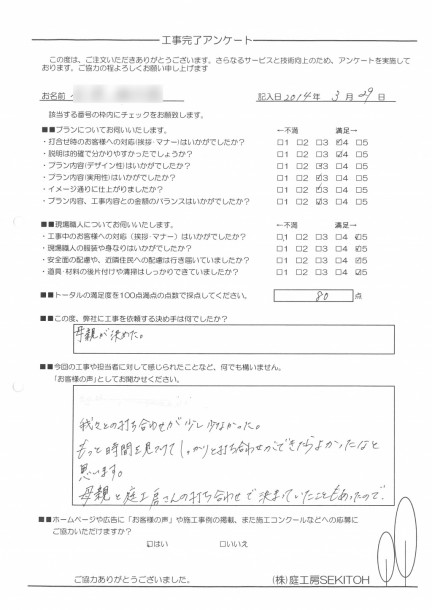 工事完了アンケート
この度は、ご注文いただきありがとうございます。さらなるサービスと技術向上のため、アンケートを実施して
おります。ご協力の程よろしくお願い申し上げます
お名前 記入日 2014年 3月 29日
該当する番号の枠内にチェックをお願致します。
■■プランについてお伺いいたします。 ←不満 満足→
・打合せ時のお客様への対応(挨拶・マナー)はいかがでしたか? □1 □2 □3 ☑4 □5
・説明は的確で分かりやすかったでしょうか? □1 □2 □3 ☑4 □5
・プラン内容(デザイン性)はいかがでしたか? □1 □2 ☑3 □4 □5
・プラン内容(実用性)はいかがでしたか? □1 □2 ☑3 □4 □5
・イメージ通りに仕上がりましたか? □1 □2 ☑3 □4 □5
・プラン内容、工事内容との金額のバランスはいかがでしたか? □1 □2 ☑3 □4 □5
■■現場職人についてお伺いいたします。 ←不満 満足→
・工事中のお客様への対応(挨拶・マナー)はいかがでしたか? □1 □2 □3 □4 ☑5
・現場職人の服装や身なりはいかがでしたか? □1 □2 □3 □4 ☑5
・安全面の配慮や、近隣住民への配慮は行き届いていましたか? □1 □2 □3 □4 ☑5
・道具・材料の後片付けや清掃はしっかりできていましたか? □1 □2 □3 □4 ☑5
■■トータルの満足度を100点満点の点数で採点してください。 80 点
■■この度、弊社に工事を依頼する決め手は何でしたか?
母親が決めた。
■■今回の工事や担当者に対して感じられたことなど、何でも構いません。
「お客様の声」としてお聞かせください。
我々との打ち合わせが少し少なかった。
もっと時間を見つけてしっかりと打ち合わせができたらよかったなと
思います。
母親と庭工房さんの打ち合わせで決まっていたこともあったので。
■■ホームページや広告に「お客様の声」や施工事例の掲載、また施工コンクールなどへの応募に
ご協力いただけますか?
☑はい □いいえ
ご協力ありがとうございました。 (株)庭工房SEKITOH